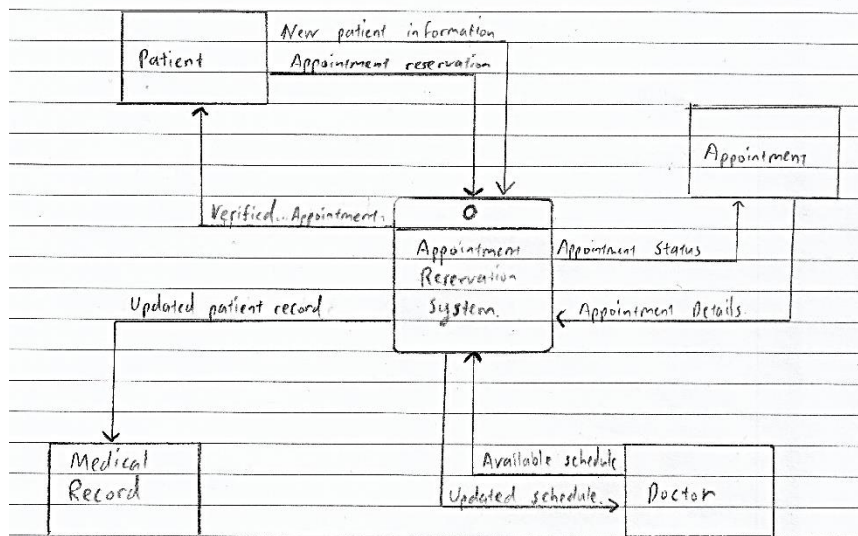 New patient information
Patient
Appointment reservation
Appointment
Verified Appointment.
0
Appointment
Reservation
System.
Appointment Status
Updated patient record
Appointment Details
Medical
Record
Available schedule
Updated schedule.
Doctor